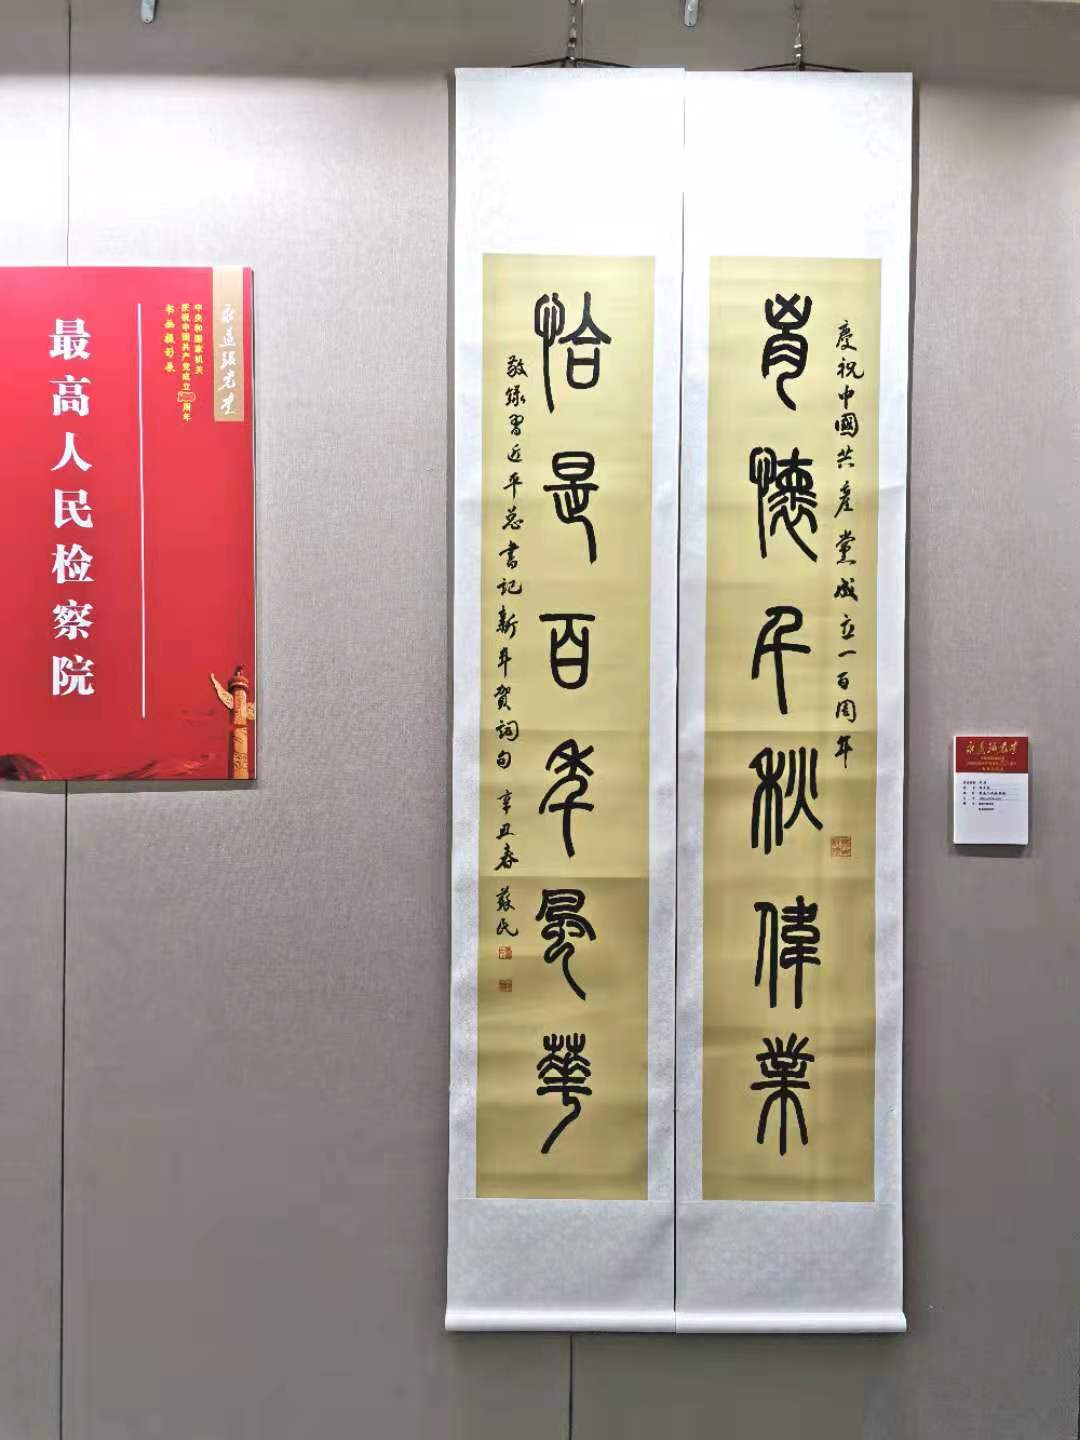 最高人民检察院
永远跟党走
中央和国家机关
庆祝中国共产党成立100周年
书画摄影展
慶祝中國共產黨成立一百周年
肯懷千秋偉業
恰是百年風華
敬錄習近平总書記新年贺词句 辛丑春 蘇民
永远跟党走